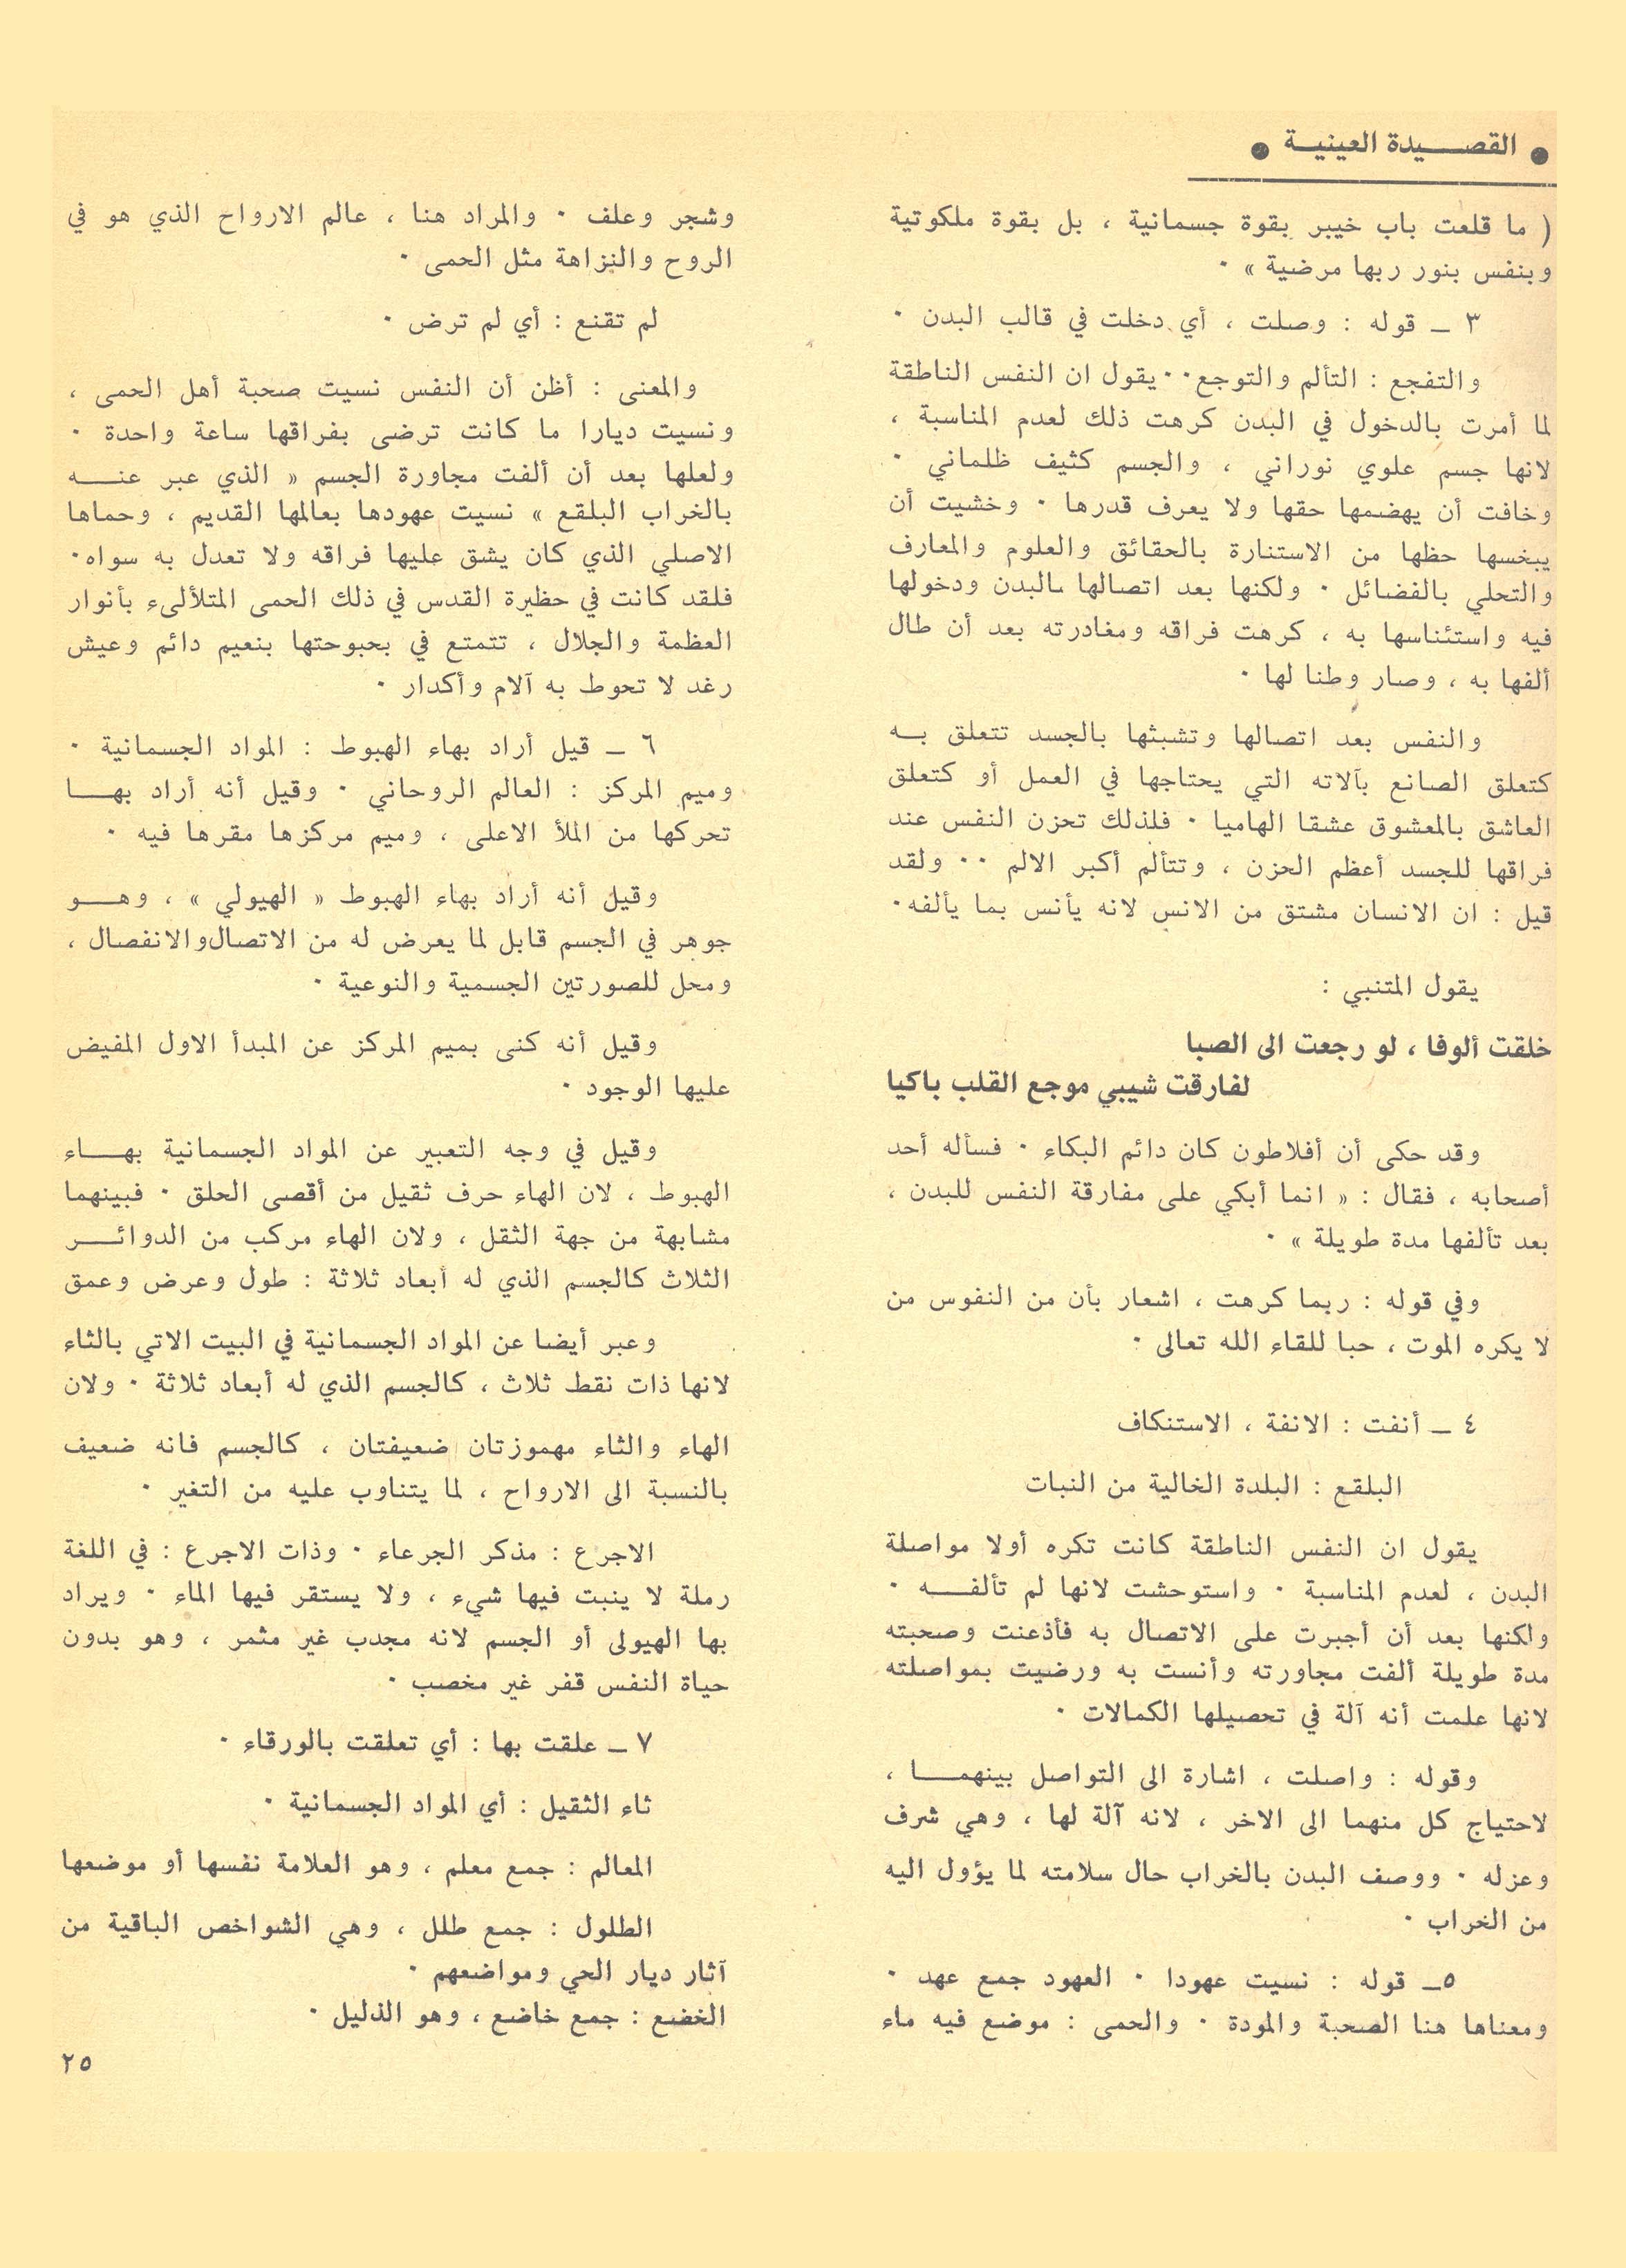 ● القصيدة العينية ●
( ما قلعت باب خيبر بقوة جسمانية ، بل بقوة ملكوتية
وبنفس بنور ربها مرضية » ٠
٣ ـ قوله : وصلت ، أي دخلت في قالب البدن ٠
والتفجع : التألم والتوجع ٠٠ يقول ان النفس الناطقة
لما أمرت بالدخول في البدن كرهت ذلك لعدم المناسبة ،
لانها جسم علوي نوراني ، والجسم كثيف ظلماني ٠
وخافت أن يهضمها حقها ولا يعرف قدرها ٠ وخشيت أن
يبخسها حظها من الاستنارة بالحقائق والعلوم والمعارف
والتحلي بالفضائل ٠ ولكنها بعد اتصالها بالبدن ودخولها
فيه واستئناسها به ، كرهت فراقه ومغادرته بعد أن طال
ألفها به ، وصار وطنا لها ٠
والنفس بعد اتصالها وتشبثها بالجسد تتعلق بـه
كتعلق الصانع بآلاته التي يحتاجها في العمل أو كتعلق
العاشق بالمعشوق عشقا الهاميا ٠ فلذلك تحزن النفس عند
فراقها للجسد أعظم الحزن ، وتتألم أكبر الالم ٠٠ ولقد
قيل : ان الانسان مشتق من الانس لانه يأنس بما يألفه ٠
يقول المتنبي :
خلقت ألوفا ، لو رجعت الى الصبا
لفارقت شيبي موجع القلب باكيا
وقد حكى أن أفلاطون كان دائم البكاء ٠ فسأله أحد
أصحابه ، فقال : « انما أبكي على مفارقة النفس للبدن ،
بعد تألفها مدة طويلة » ٠
وفي قوله : ربما كرهت ، اشعار بأن من النفوس من
لا يكره الموت ، حبا للقاء الله تعالى ٠
٤ ـ أنفت : الانفة ، الاستنكاف
البلقع : البلدة الخالية من النبات
يقول ان النفس الناطقة كانت تكره أولا مواصلة
البدن ، لعدم المناسبة ٠ واستوحشت لانها لم تألفـه ٠
ولكنها بعد أن أجبرت على الاتصال به فأذعنت وصحبته
مدة طويلة ألفت مجاورته وأنست به ورضيت بمواصلته
لانها علمت أنه آلة في تحصيلها الكمالات ٠
وقوله : واصلت ، اشارة الى التواصل بينهمـا ،
لاحتياج كل منهما الى الاخر ، لانه آلة لها ، وهي شرف
وعزله ٠ ووصف البدن بالخراب حال سلامته لما يؤول اليه
من الخراب ٠
٥ـ قوله : نسيت عهودا ٠ العهود جمع عهد ٠
ومعناها هنا الصحبة والمودة ٠ والحمى : موضع فيه ماء
وشجر وعلف ٠ والمراد هنا ، عالم الارواح الذي هو في
الروح والنزاهة مثل الحمى ٠
لم تقنع : أي لم ترض ٠
والمعنى : أظن أن النفس نسيت صحبة أهل الحمى ،
ونسيت ديارا ما كانت ترضى بفراقها ساعة واحدة ٠
ولعلها بعد أن ألفت مجاورة الجسم « الذي عبر عنـه
بالخراب البلقع » نسيت عهودها بعالمها القديم ، وحماها
الاصلي الذي كان يشق عليها فراقه ولا تعدل به سواه ٠
فلقد كانت في حظيرة القدس في ذلك الحمى المتلألىء بأنوار
العظمة والجلال ، تتمتع في بحبوحتها بنعيم دائم وعيش
رغد لا تحوط به آلام وأكدار ٠
٦ ـ قيل أراد بهاء الهبوط : المواد الجسمانية ٠
وميم المركز : العالم الروحاني ٠ وقيل أنه أراد بهـا
تحركها من الملأ الاعلى ، وميم مركزها مقرها فيه ٠
وقيل أنه أراد بهاء الهبوط « الهيولي » ، وهـو
جوهر في الجسم قابل لما يعرض له من الاتصال والانفصال ،
ومحل للصورتين الجسمية والنوعية ٠
وقيل أنه كنى بميم المركز عن المبدأ الاول المفيض
عليها الوجود ٠
وقيل في وجه التعبير عن المواد الجسمانية بهـاء
الهبوط ، لان الهاء حرف ثقيل من أقصى الحلق ٠ فبينهما
مشابهة من جهة الثقل ، ولان الهاء مركب من الدوائـر
الثلاث كالجسم الذي له أبعاد ثلاثة : طول وعرض وعمق
وعبر أيضا عن المواد الجسمانية في البيت الاتي بالثاء
لانها ذات نقط ثلاث ، كالجسم الذي له أبعاد ثلاثة ٠ ولان
الهاء والثاء مهموزتان ضعيفتان ، كالجسم فانه ضعيف
بالنسبة الى الارواح ، لما يتناوب عليه من التغير ٠
الاجرع : مذكر الجرعاء ٠ وذات الاجرع : في اللغة
رملة لا ينبت فيها شيء ، ولا يستقر فيها الماء ٠ ويراد
بها الهيولى أو الجسم لانه مجدب غير مثمر ، وهو بدون
حياة النفس قفر غير مخصب ٠
٧ ـ علقت بها : أي تعلقت بالورقاء ٠
ثاء الثقيل : أي المواد الجسمانية ٠
المعالم : جمع معلم ، وهو العلامة نفسها أو موضعها
الطلول : جمع طلل ، وهي الشواخص الباقية من
آثار ديار الحي ومواضعهم ٠
الخضع : جمع خاضع ، وهو الذليل ٠
٢٥